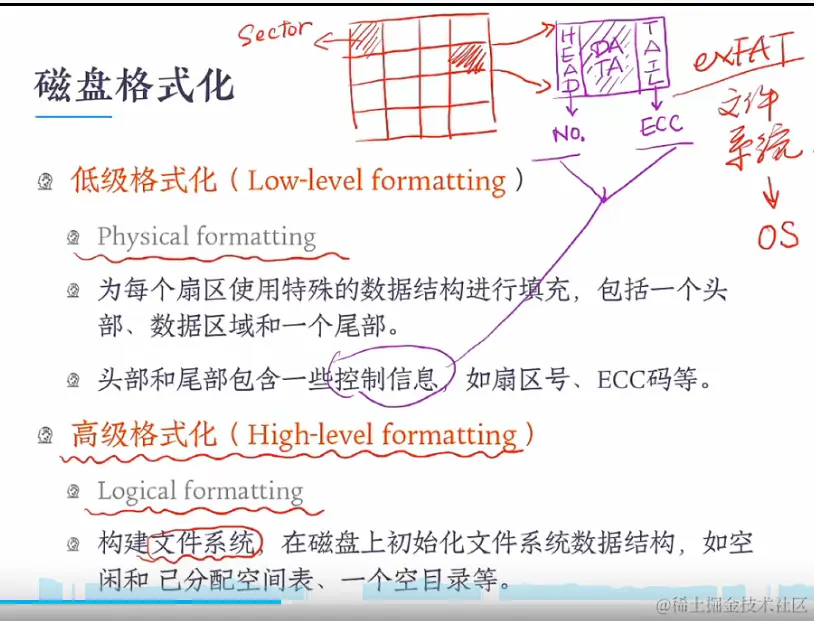 Sector
HEAD
DATA
TAIL
exFAT
磁盘格式化
NO.
ECC
文件
系统
OS
低级格式化（Low-level formatting）
Physical formatting
为每个扇区使用特殊的数据结构进行填充，包括一个头
部、数据区域和一个尾部。
头部和尾部包含一些控制信息，如扇区号、ECC码等。
高级格式化（High-level formatting）
Logical formatting
构建文件系统，在磁盘上初始化文件系统数据结构，如空
闲和 已分配空间表、一个空目录等。
@稀土掘金技术社区